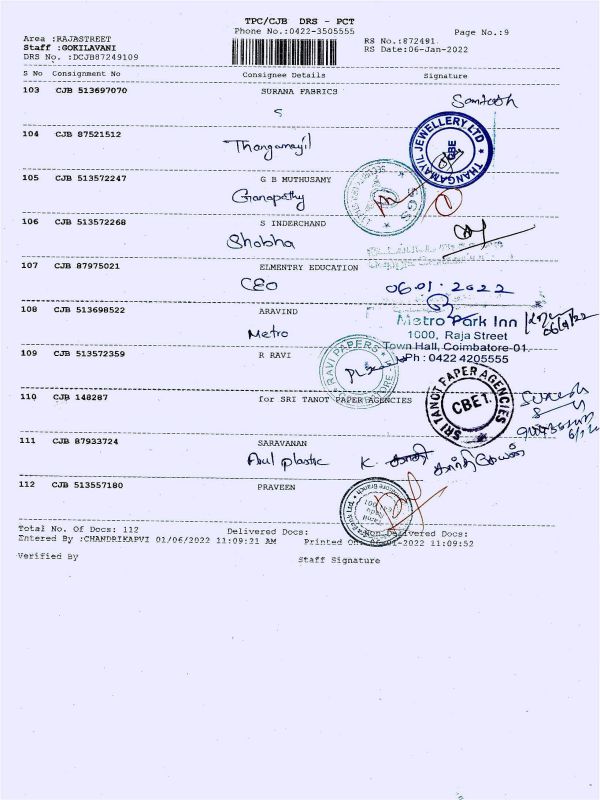 TPC/CJB DRS - PCT
Phone No.:0422-3505555
Page No.:9
Area :RAJASTREET
RS No.:872491
Staff :GOKILAVANI
RS Date:06-Jan-2022
DRS No. :DCJB87249109
S No Consignment No Consignee Details Signature
103 CJB 513697070 SURANA FABRICS
Santosh
S
104 CJB 87521512
Thangamayil
THANGAMAYIL JEWELLERY LTD
CBE
105 CJB 513572247 G B MUTHUSAMY
Ganapathy
SGS
106 CJB 513572268 S INDERCHAND
Shobha
107 CJB 87975021 ELMENTRY EDUCATION
CEO 06.01.2022
108 CJB 513698522 ARAVIND
Metro
Metro Park Inn
1000, Raja Street
Town Hall, Coimbatore-01.
Ph : 0422 4205555
06/1/22
109 CJB 513572359 R RAVI
RAVI PAPERS
110 CJB 148287 for SRI TANOT PAPER AGENCIES
SRI TANOT PAPER AGENCIES
CBE 1.
Suresh
111 CJB 87933724 SARAVANAN
Arul plastic K.
112 CJB 513557180 PRAVEEN
Total No. Of Docs: 112 Delivered Docs: Non Delivered Docs:
Entered By :CHANDRIKAPVI 01/06/2022 11:09:21 AM Printed On: 06-01-2022 11:09:52
Verified By Staff Signature